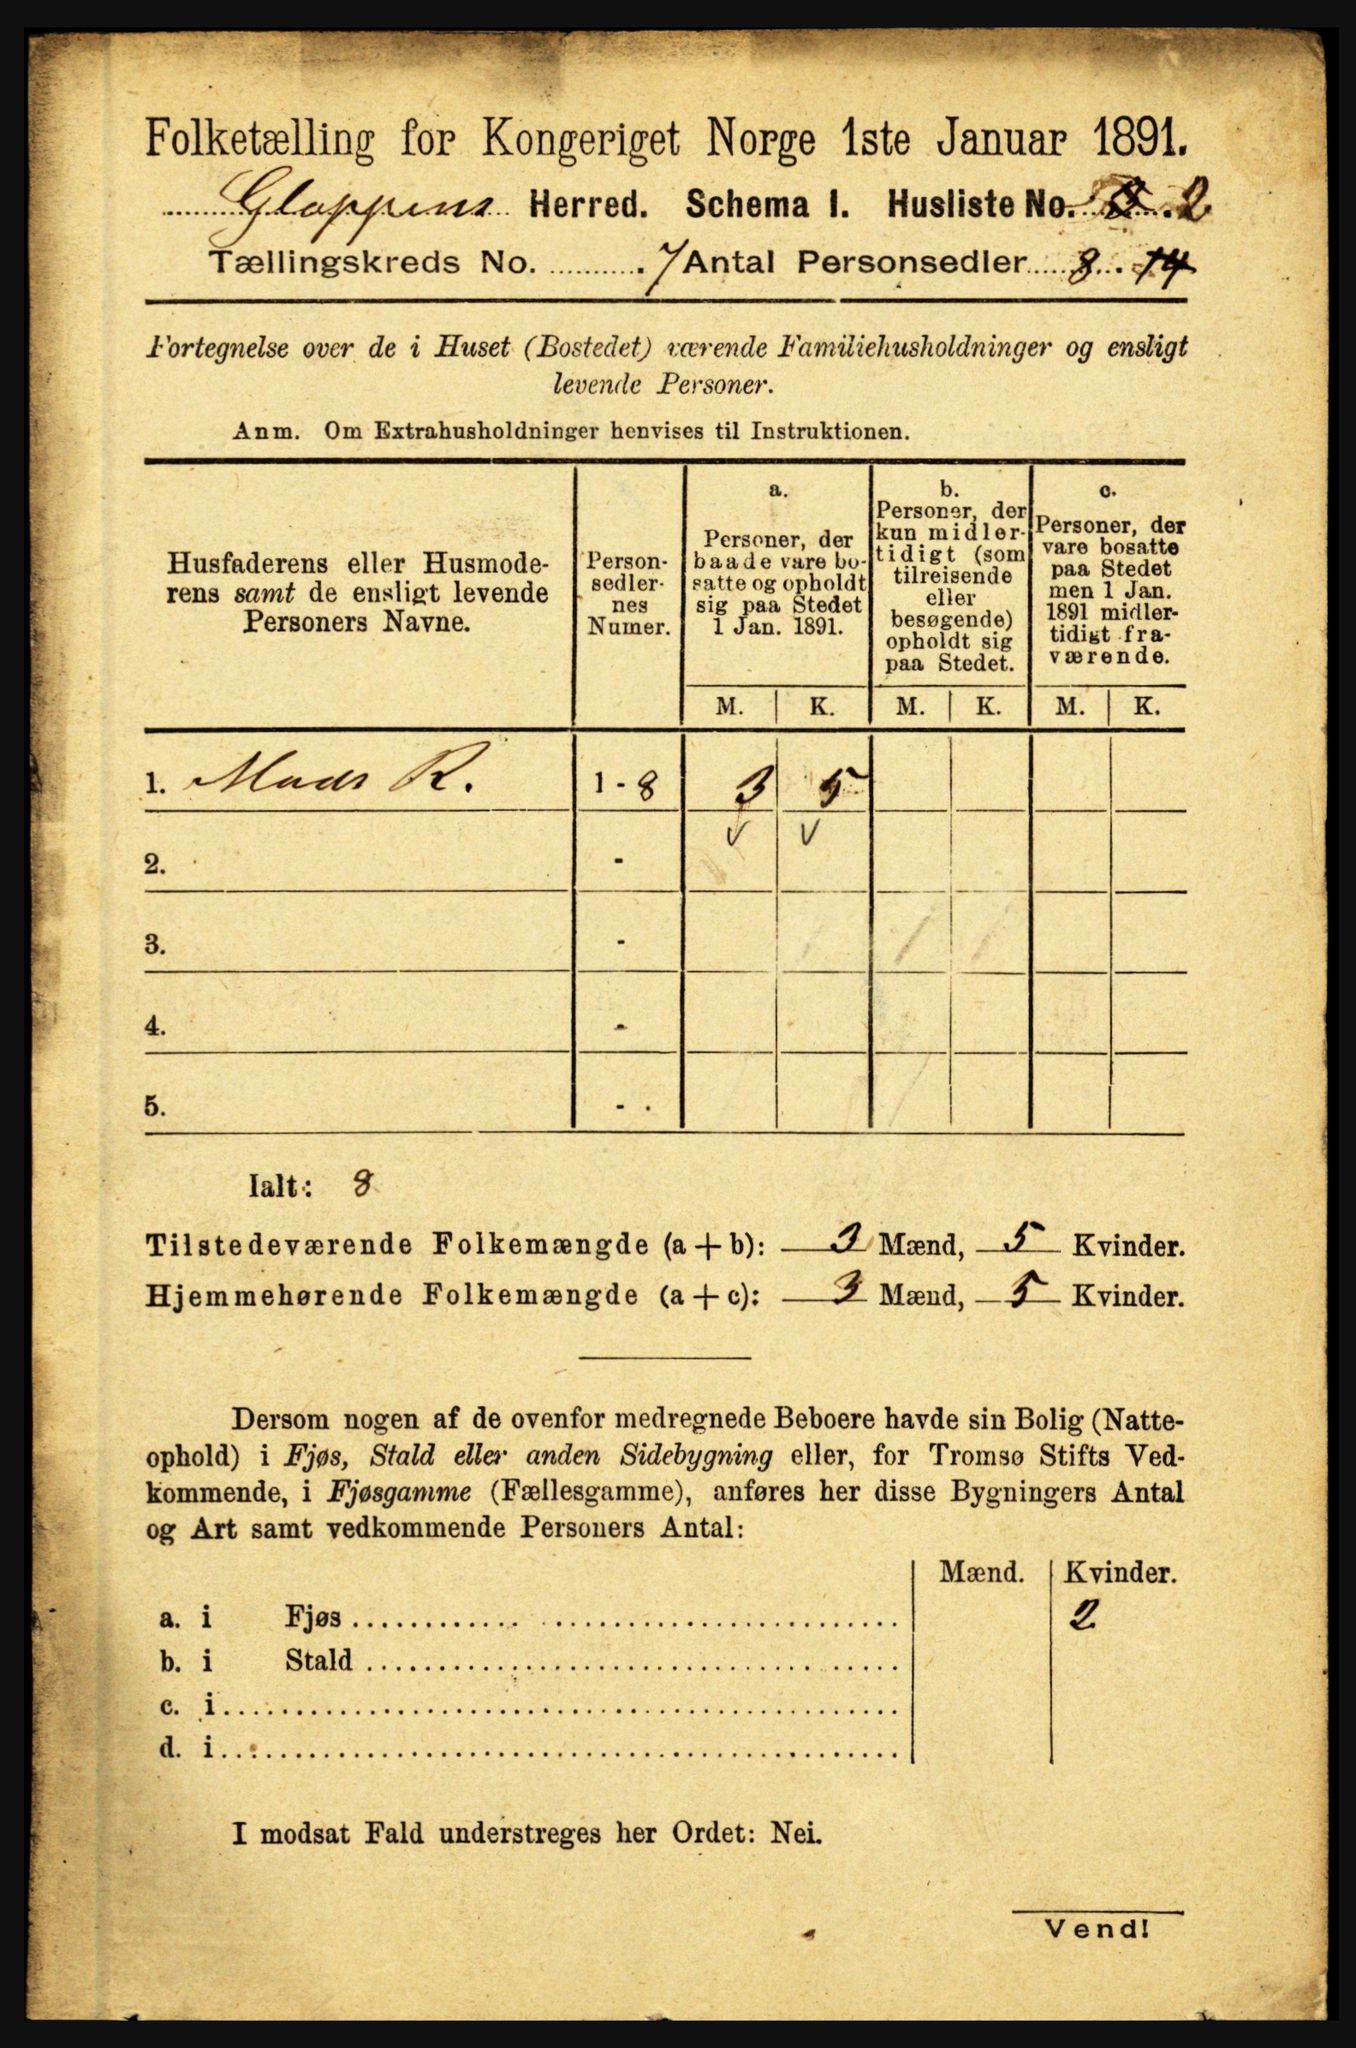 Folketælling for Kongeriget Norge 1ste Januar 1891.
Gloppens Herred. Schema I. Husliste No. 2
Tællingskreds No. 7 Antal Personsedler 8. 14
Fortegnelse over de i Huset (Bostedet) værende Familiehusholdninger og ensligt
levende Personer.
Anm. Om Extrahusholdninger henvises til Instruktionen.
Husfaderens eller Husmode-
rens samt de ensligt levende
Personers Navne.
Person-
sedler-
nes
Numer.
a.
Personer, der
baade vare bo-
satte og opholdt
sig paa Stedet
1 Jan. 1891.
b.
Personer, der
kun midler-
tidigt (som
tilreisende
eller
besøgende)
opholdt sig
paa Stedet.
c.
Personer, der
vare bosatte
paa Stedet
men 1 Jan.
1891 midler-
tidigt fra-
værende.
M. K. M. K. M. K.
1. Mads R. 1 - 8 3 5
2. -
3. -
4. -
5. -
Ialt: 8
Tilstedeværende Folkemængde (a + b): 3 Mænd, 5 Kvinder.
Hjemmehørende Folkemængde (a + c): 3 Mænd, 5 Kvinder.
Dersom nogen af de ovenfor medregnede Beboere havde sin Bolig (Natte-
ophold) i Fjøs, Stald eller anden Sidebygning eller, for Tromsø Stifts Ved-
kommende, i Fjøsgamme (Fællesgamme), anføres her disse Bygningers Antal
og Art samt vedkommende Personers Antal:
Mænd. Kvinder.
a. i Fjøs 2
b. i Stald
c. i
d. i
I modsat Fald understreges her Ordet: Nei.
Vend!